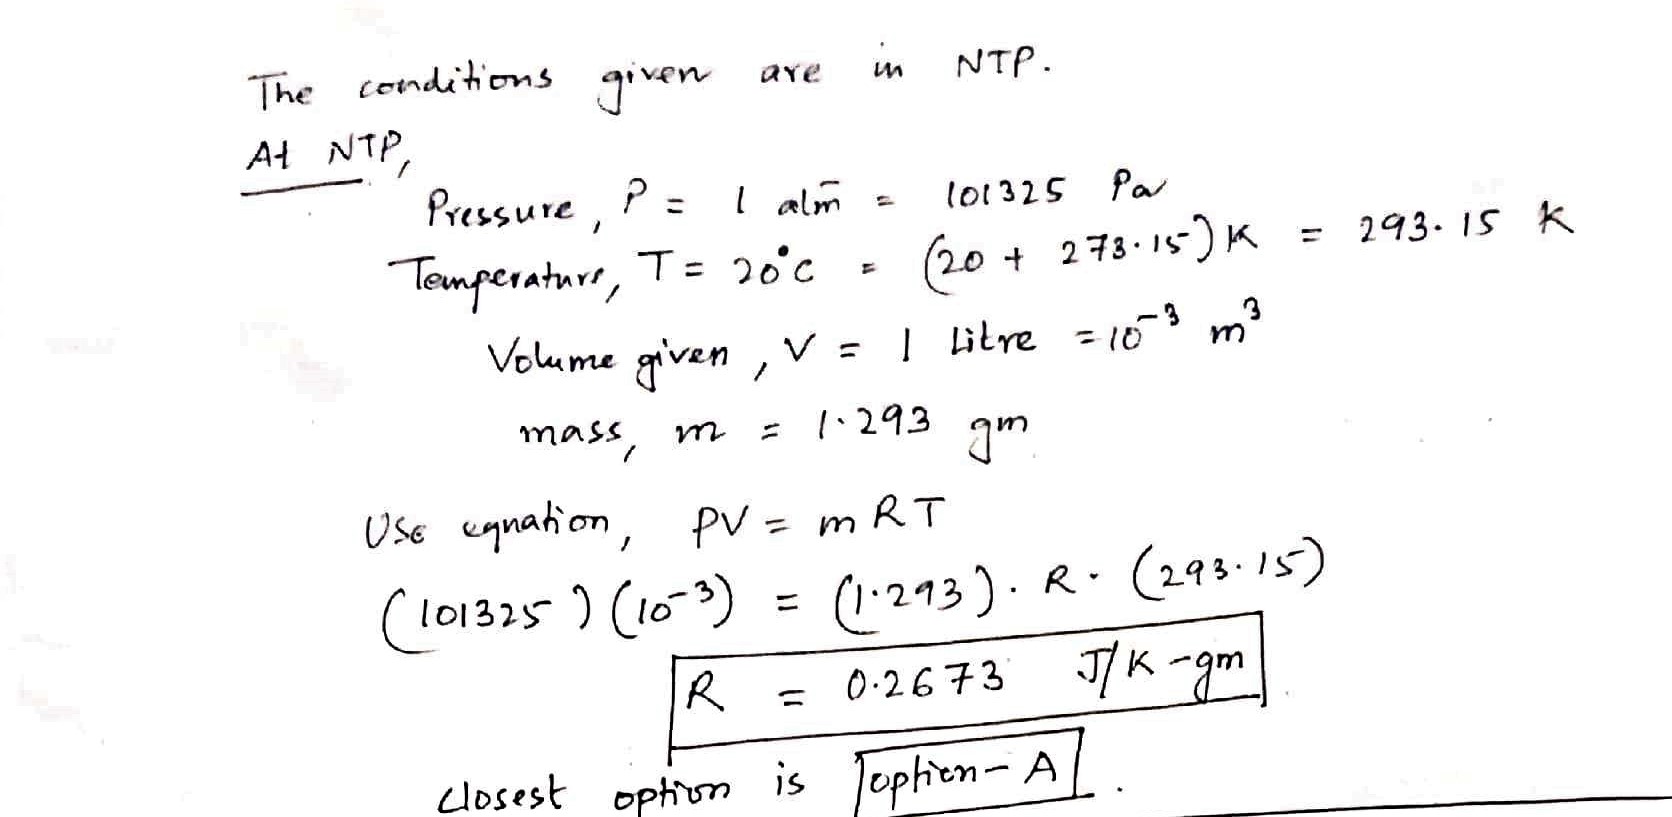 The conditions given are in NTP.
At NTP,
Pressure, P = 1 atm = 101325 Pa
Temperature, T = 20°C = (20 + 273.15) K = 293.15 K
Volume given, V = 1 Litre = 10⁻³ m³
mass, m = 1.293 gm
Use equation, PV = mRT
(101325) (10⁻³) = (1.293). R. (293.15)
R = 0.2673 J/K-gm
closest option is option-A.